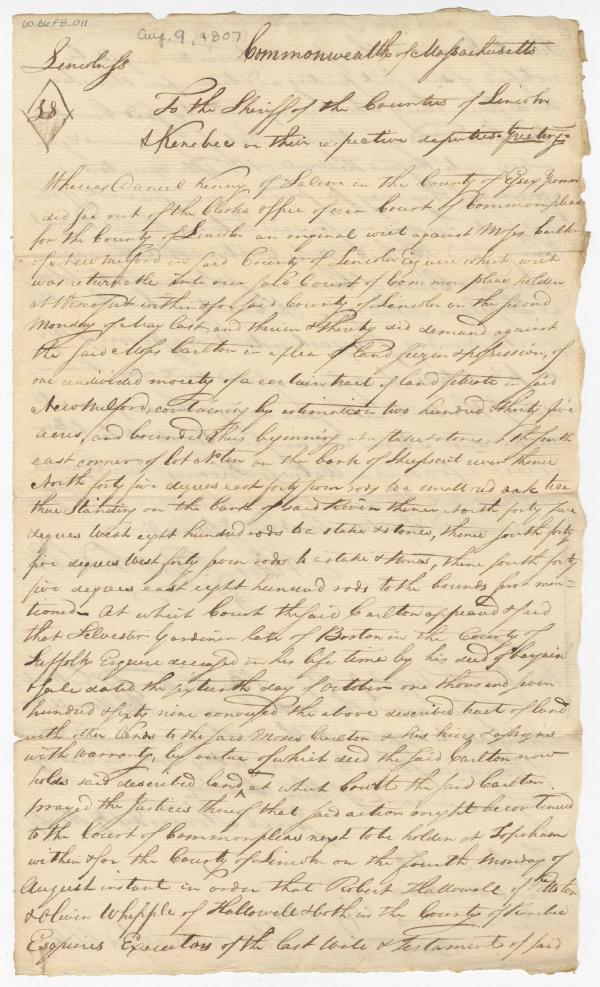 60.86F8.011
Aug. 9, 1807
Commonwealth of Massachusetts
Lincoln ss
To the Sheriff of the Counties of Lincoln
& Kenebec or their respective deputies Greeting
Whereas Daniel Kenny of Salem in the County of Essex
did sue out of the Clerks office of our Court of Common pleas
for the County of Lincoln an original writ against Moses Carlton
of Newmilford in said County of Lincoln Esquire which writ
was returnable into our said Court of Common pleas holden
at Wiscasset within & for said County of Lincoln on the second
Monday of May last, and therein & thereby did demand against
the said Moses Carlton in a plea of land seizin & possession, of
one undivided moiety of a certain tract of land situate in said
Newmilford, containing by estimation two hundred & thirty five
acres, and bounded thus begining at a stake & stones, at the south
east corner of lot No ten on the bank of Sheepscut river thence
North forty five degrees east forty seven rods to a small red oak tree
standing on the bank of said River thence North forty five
degees West eight hundred rods to a stake & stones, thence south forty
five degees West forty seven rods to a stake & stones, thence south forty
five degees east eight hundred rods to the bounds first men-
tioned. At which Court the said Carlton appeard & said
that Silvester Gardiner late of Boston in the County of
Suffolk Esquire deceased in his life time by his deed of bargain
& sale dated the sixteenth day of October one thousand seven
hundred & sixty nine conveyed the above described tract of land
with other lands to the said Moses Carlton & his heirs & assigns
with warranty, by virtue of which deed the said Carlton now
holds said described land, & at which Court the said Carlton
prayed the Justices thereof that said action might be continued
to the Court of Common pleas next to be holden at Topsham
within & for the County of Lincoln on the fourth Monday of
August instant in order that Robert Hallowell of Pittston
& Oliver Whipple of Hallowell & both in the County of Kenebec
Esquires Executors of the last Will & Testament of said